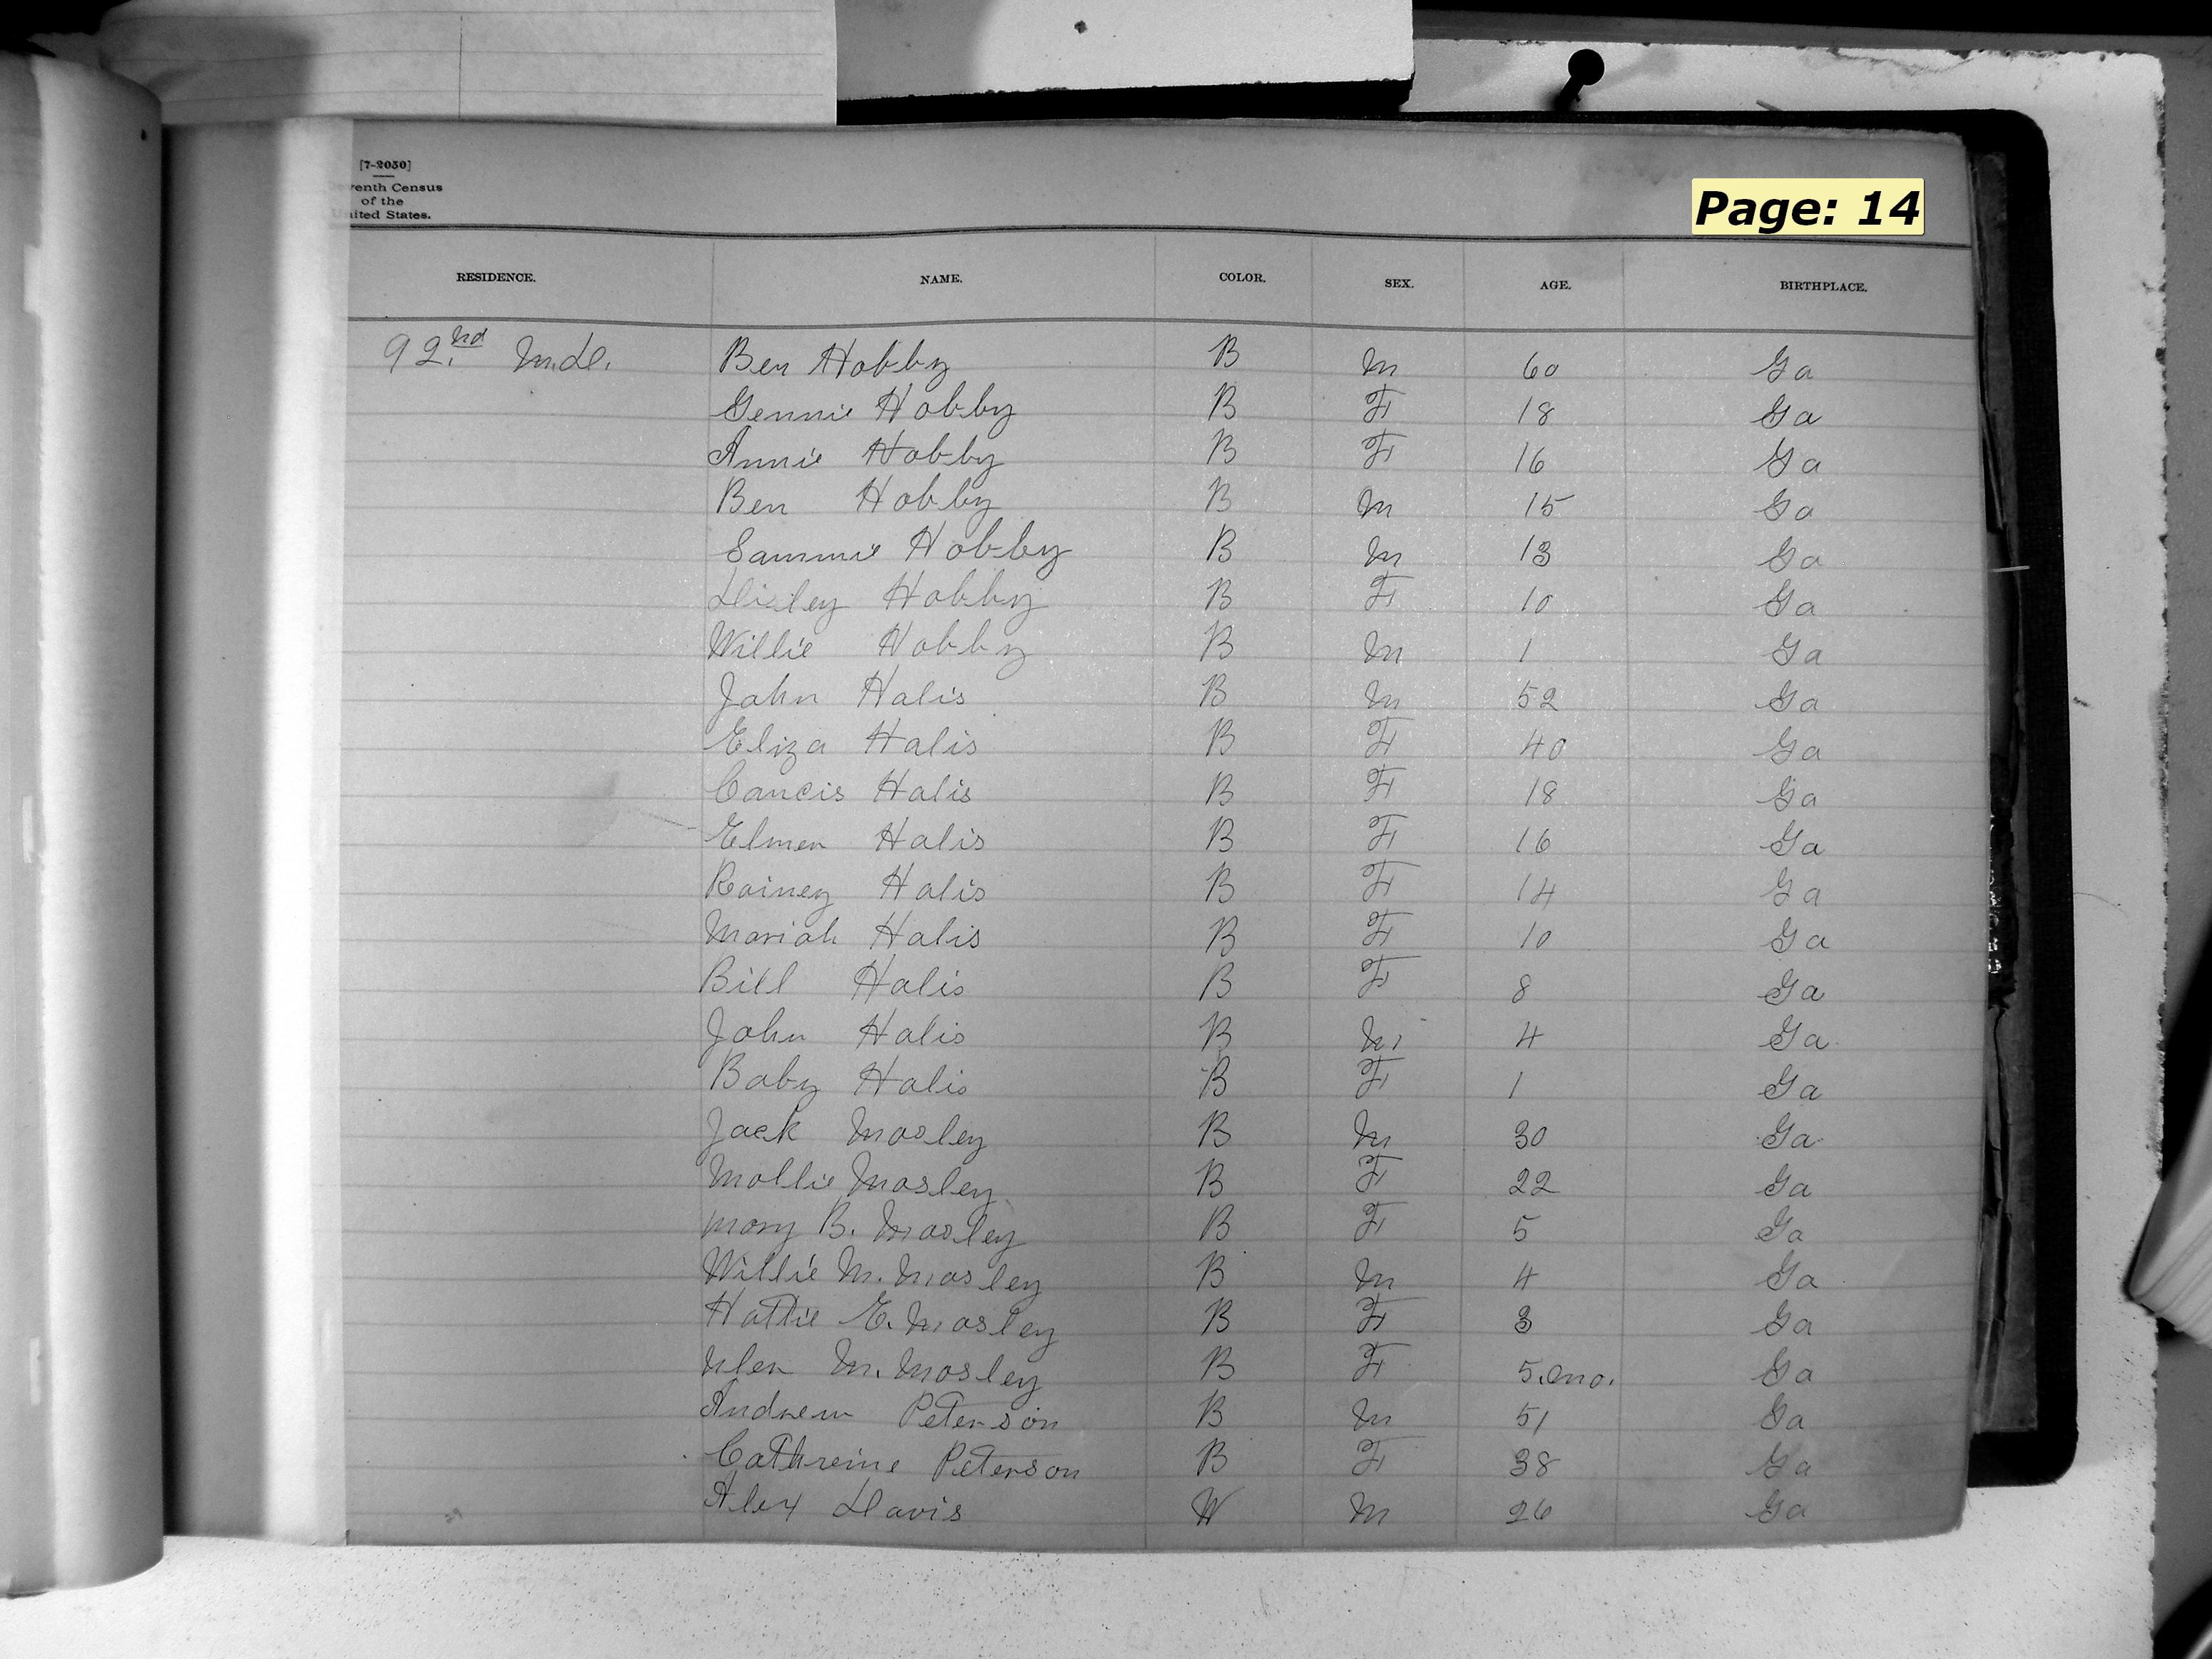 [7-2050]
venth Census
of the
United States.
Page: 14
RESIDENCE. NAME. COLOR. SEX. AGE. BIRTHPLACE.
92.nd M.D. Ben Hobby B M 60 Ga
Gennie Hobby B F 18 Ga
Annie Hobby B F 16 Ga
Ben Hobby B M 15 Ga
Sammie Hobby B M 13 Ga
Hobby B F 10 Ga
Willie Hobby B M 1 Ga
John Halis B M 52 Ga
Eliza Halis B F 40 Ga
Cancis Halis B F 18 Ga
Elmer Halis B F 16 Ga
Rainey Halis B F 14 Ga
Mariah Halis B F 10 Ga
Bill Halis B F 8 Ga
John Halis B M 4 Ga
Baby Halis B F 1 Ga
Jack Mosley B M 30 Ga
Mollie Mosley B F 22 Ga
Mary B. Mosley B F 5 Ga
Willie M. Mosley B M 4 Ga
Hattie E. Mosley B F 3 Ga
M. Mosley B F 5.mo. Ga
Andrew Peterson B M 51 Ga
Cathreine Peterson B F 38 Ga
Alex Davis W M 26 Ga